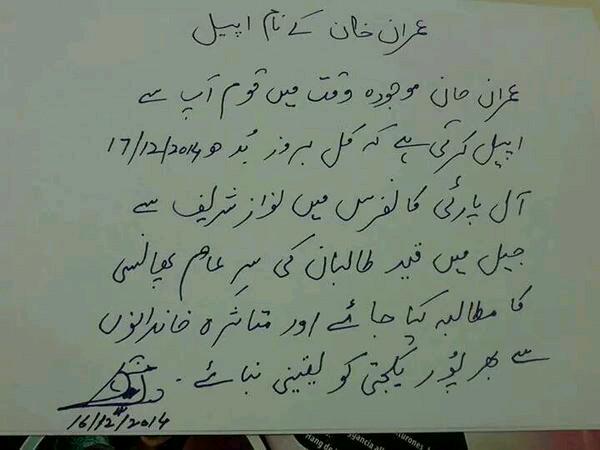 عمران خان کے نام اپیل
عمران خان موجودہ وقت میں قوم آپ سے
اپیل کرتی ہے کہ کل بروز بُدھ 17/12/2014
آل پارٹی کانفرس میں نواز شریف سے
جیل میں قید طالبان کی سرِ عام پھانسی
کا مطالبہ کیا جائے اور متاثرہ خاندانوں
سے بھر پُور یکجتی کو یقینی بنائے۔
16/12/2014